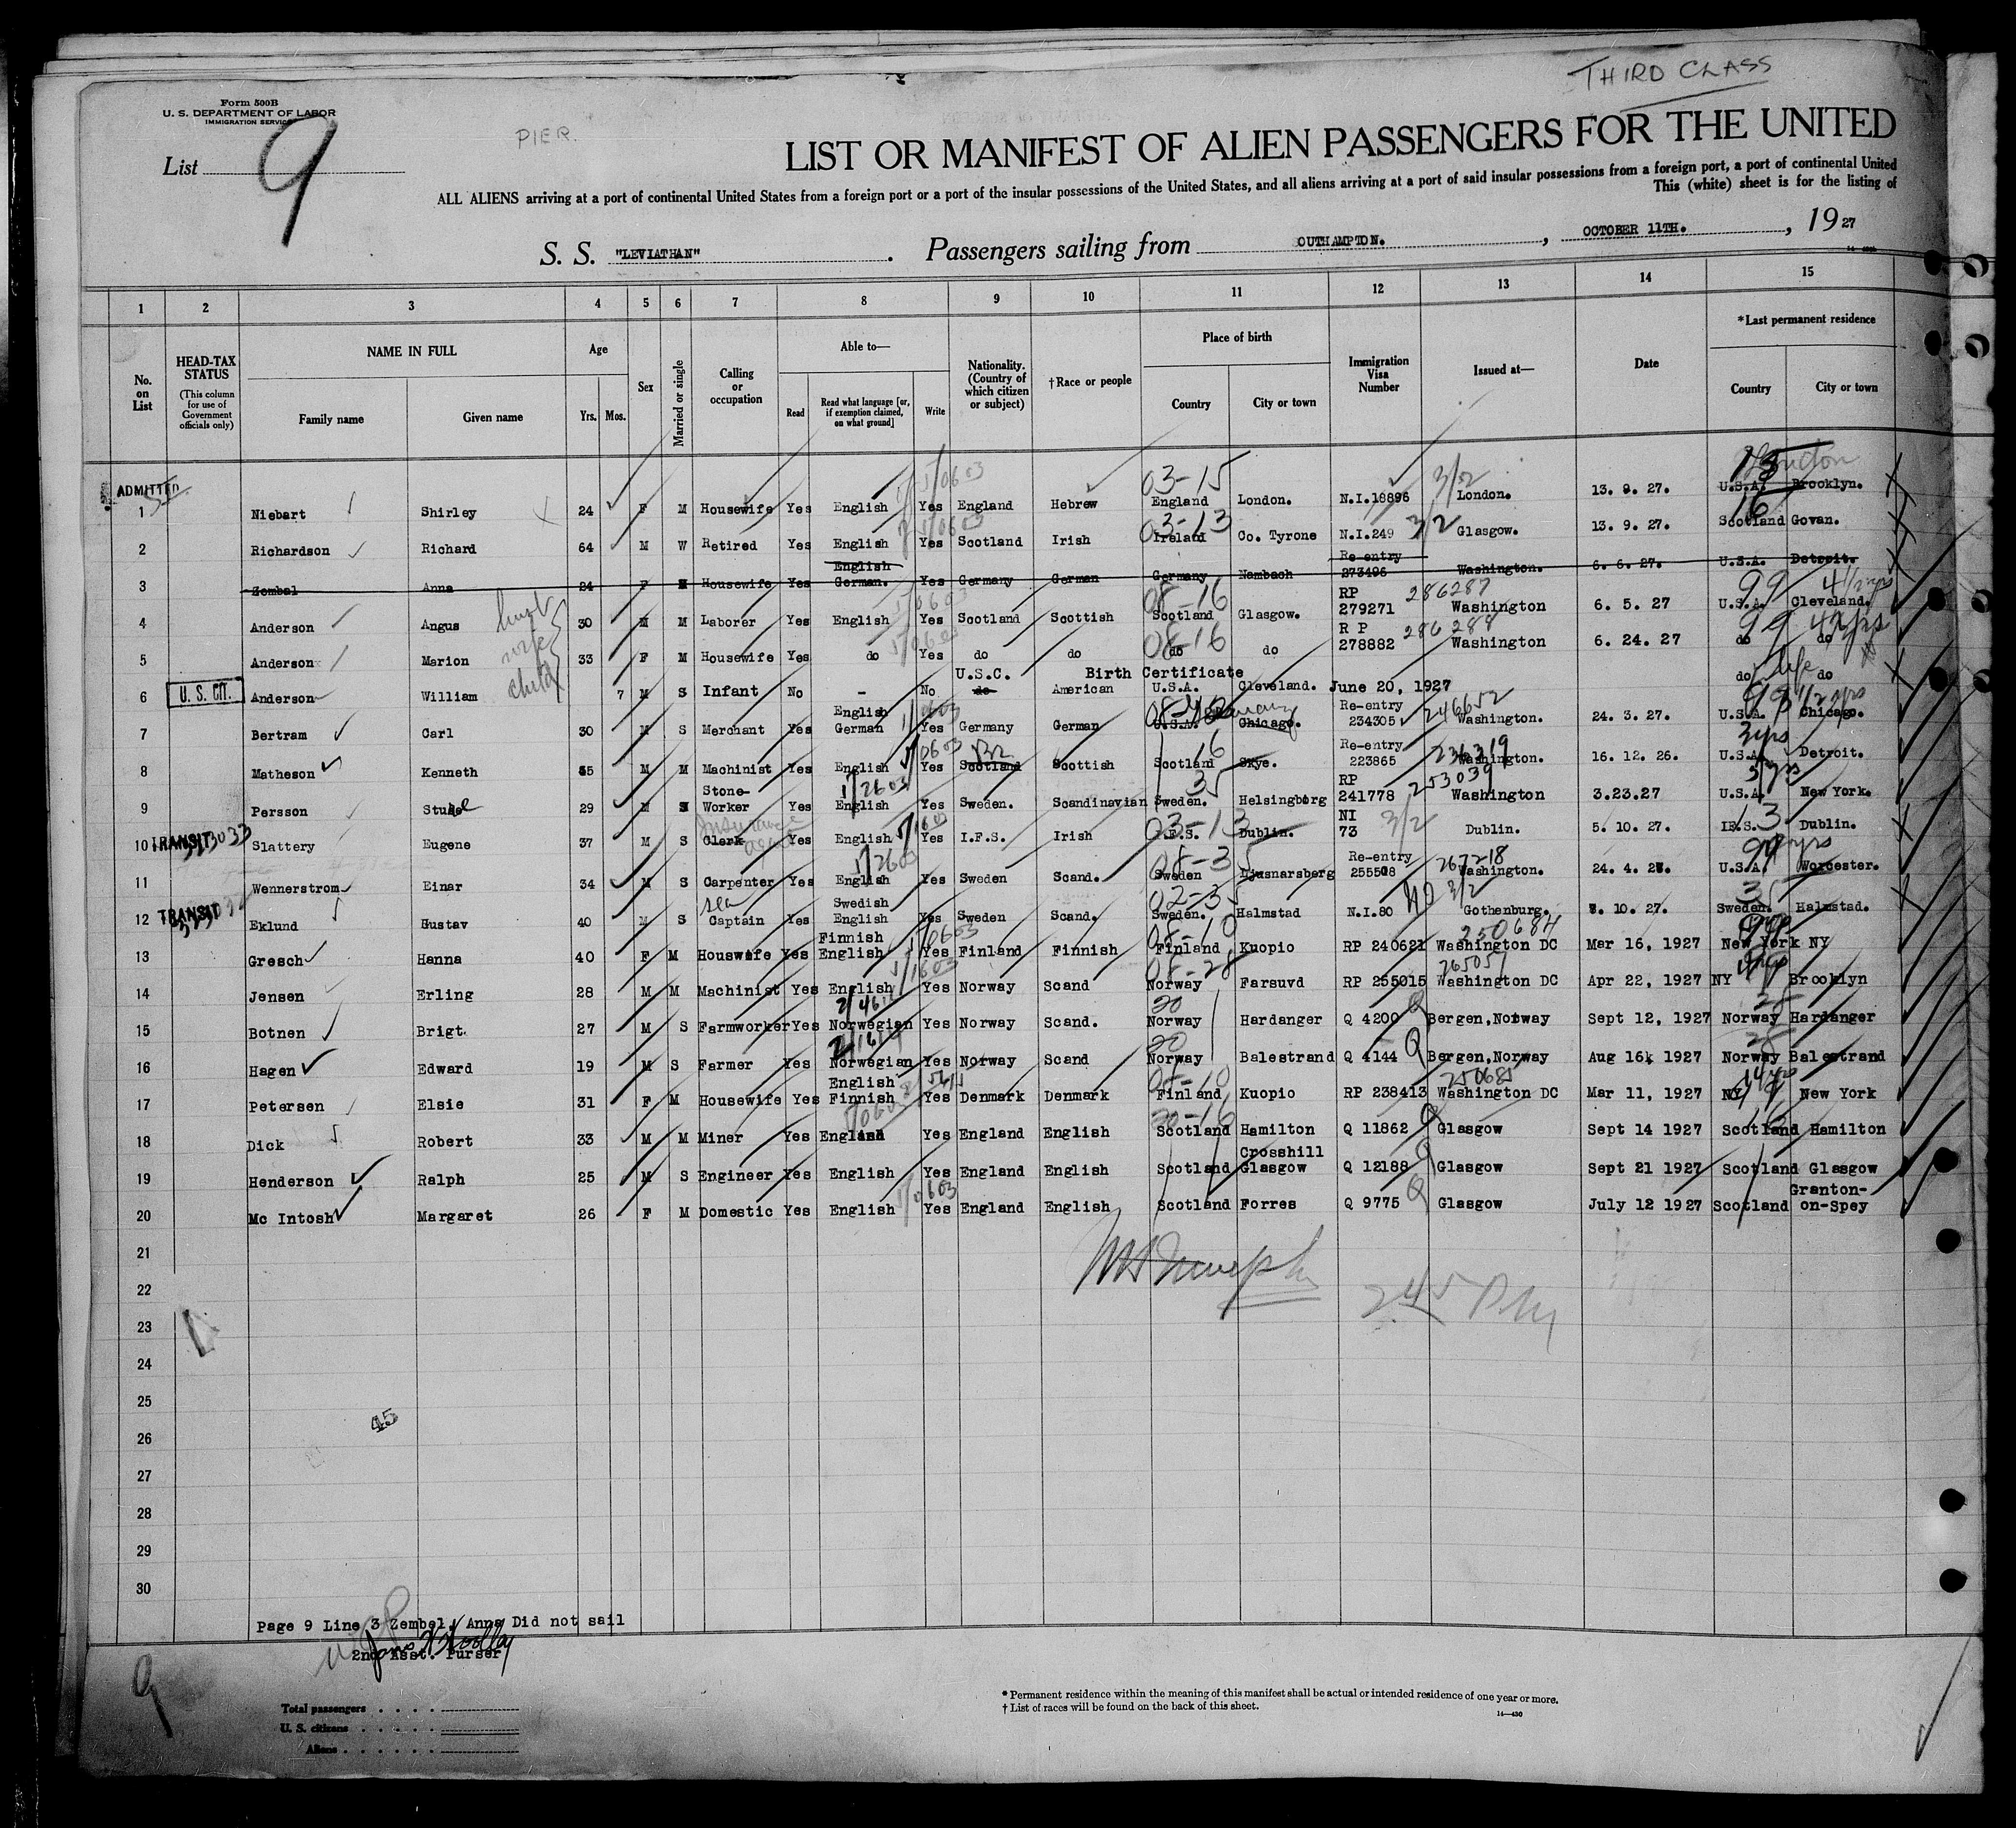 THIRD CLASS
Form 500B
U. S. DEPARTMENT OF LABOR
IMMIGRATION SERVICE
PIER.
List 9
LIST OR MANIFEST OF ALIEN PASSENGERS FOR THE UNITED
ALL ALIENS arriving at a port of continental United States from a foreign port or a port of the insular possessions of the United States, and all aliens arriving at a port of said insular possessions from a foreign port, a port of continental United
This (white) sheet is for the listing of
S. S. "LEVIATHAN" . Passengers sailing from OUTHAMPTON. , OCTOBER 11TH. , 19 27
1 2 3 4 5 6 7 8 9 10 11 12 13 14 15
No. on List
HEAD-TAX STATUS
(This column for use of Government officials only)
NAME IN FULL
Family name Given name
Age
Yrs. Mos.
Sex
Married or single
Calling or occupation
Able to—
Read Read what language [or, if exemption claimed, on what ground] Write
Nationality. (Country of which citizen or subject)
†Race or people
Place of birth
Country City or town
Immigration Visa Number
Issued at—
Date
*Last permanent residence
Country City or town
ADMITTED
03-15 3/2 London
1 Niebart Shirley 24 F M Housewife Yes English Yes England Hebrew England London. N.I.18896 London. 13. 9. 27. U.S.A. Brooklyn.
03-13 3/2 16
2 Richardson Richard 64 M W Retired Yes English Yes Scotland Irish Ireland Co. Tyrone N.I.249 Glasgow. 13. 9. 27. Scotland Govan.
3 Zembal Anna 24 F M Housewife Yes English German. Yes Germany German Germany Nembach Re-entry 273496 Washington. 6. 6. 27. U.S.A. Detroit.
husb 08-16 286287 99
4 Anderson Angus 30 M M Laborer Yes English Yes Scotland Scottish Scotland Glasgow. RP 279271 Washington 6. 5. 27 U.S.A. Cleveland.
wife 08-16 286288 99
5 Anderson Marion 33 F M Housewife Yes do Yes do do do do R P 278882 Washington 6. 24. 27 do do
child life
6 U. S. CIT. Anderson William 7 M S Infant No - No U.S.C. do American Birth Certificate U.S.A. Cleveland. June 20, 1927 do do
Germany 246652
7 Bertram Carl 30 M S Merchant Yes English German Yes Germany German U.S.A. Chicago. Re-entry 234305 Washington. 24. 3. 27. U.S.A. Chicago.
Br 16 236319 3 yrs
8 Matheson Kenneth 45 M M Machinist Yes English Yes Scotland Scottish Scotland Skye. Re-entry 223865 Washington. 16. 12. 26. U.S.A. Detroit.
35 253039
9 Persson 29 M S Stone-Worker Yes English Yes Sweden. Scandinavian Sweden. Helsingborg RP 241778 Washington 3.23.27 U.S.A. New York.
Insurance 03-13 3/2 13
10 TRANSIT Slattery Eugene 37 M S Clerk Yes English Yes I.F.S. Irish I.F.S. Dublin. NI 73 Dublin. 5. 10. 27. I.F.S. Dublin.
08-35 267218
11 Wennerstrom Einar 34 M S Carpenter Yes English Yes Sweden Scand. Sweden Ljusnarsberg Re-entry 255508 Washington. 24. 4. 27. U.S.A. Worcester.
Sea 02-35 3/2 35
12 TRANSIT Eklund Gustav 40 M S Captain Yes Swedish English Yes Sweden Scand. Sweden. Halmstad N.I.80 Gothenburg. 10. 27. Sweden. Halmstad.
08-10 250684
13 Gresch Hanna 40 F M Housewife Yes Finnish English Yes Finland Finnish Finland Kuopio RP 240621 Washington DC Mar 16, 1927 New York NY
08-28 265051
14 Jensen Erling 28 M M Machinist Yes English Yes Norway Scand Norway Farsuvd RP 255015 Washington DC Apr 22, 1927 NY Brooklyn
20 Q
15 Botnen Brigt. 27 M S Farmworker Yes Norwegian Yes Norway Scand. Norway Hardanger Q 4200 Bergen,Norway Sept 12, 1927 Norway Hardanger
20 Q
16 Hagen Edward 19 M S Farmer Yes Norwegian Yes Norway Scand Norway Balestrand Q 4144 Bergen,Norway Aug 16, 1927 Norway Balestrand
08-10 250685
17 Petersen Elsie 31 F M Housewife Yes English Finnish Yes Denmark Denmark Finland Kuopio RP 238413 Washington DC Mar 11, 1927 NY New York
20-16 Q 16
18 Dick Robert 33 M M Miner Yes English Yes England English Scotland Hamilton Q 11862 Glasgow Sept 14 1927 Scotland Hamilton
19 Henderson Ralph 25 M S Engineer Yes English Yes England English Scotland Crosshill Glasgow Q 12188 Q Glasgow Sept 21 1927 Scotland Glasgow
20 Mc Intosh Margaret 26 F M Domestic Yes English Yes England English Scotland Forres Q 9775 Q Glasgow July 12 1927 Scotland Granton-on-Spey
21
22
245 PM
23
24
25
45
26
27
28
29
30
Page 9 Line 3 Zembel, Anna Did not sail
2nd Asst. Purser
9
Total passengers . . . .
U. S. citizens . . . . .
Aliens . . . . . .
* Permanent residence within the meaning of this manifest shall be actual or intended residence of one year or more.
† List of races will be found on the back of this sheet.
14—430